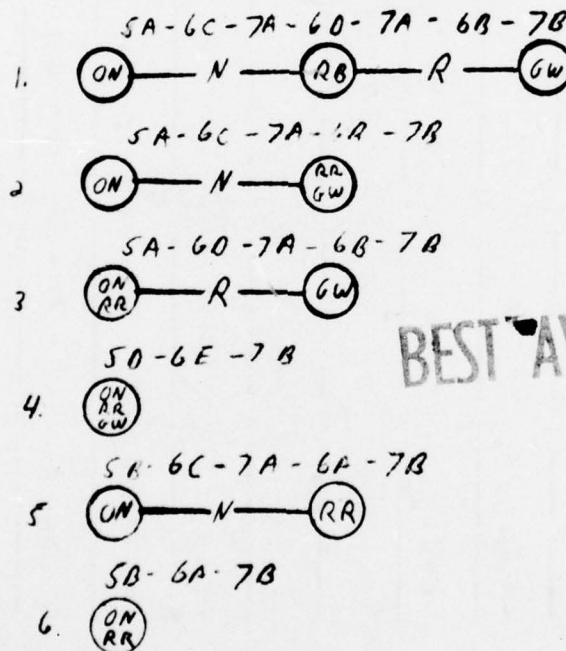 5A-6C-7A-6D-7A-6B-7B
1. ON N RB R GW
5A-6C-7A-6B-7B
2 ON N RR GW
5A-6D-7A-6B-7B
3 ON RR R GW
BEST AV
5D-6E-7B
4. ON RR GW
5B-6C-7A-6A-7B
5 ON N RR
5B-6A-7B
6. ON RR